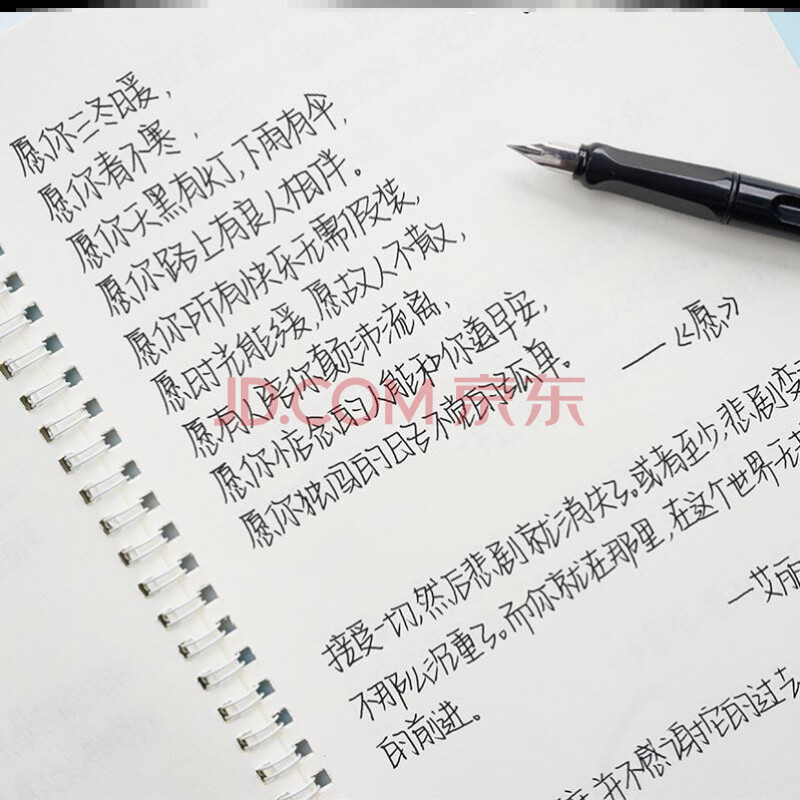 愿你三冬暖，
愿你春不寒，
愿你天黑有灯，下雨有伞，
愿你路上有良人相伴。
愿你所有快乐无需假装，
愿时光能缓，愿故人不散，
愿有人陪你颠沛流离，
愿你惦念的人能和你道早安，
愿你独闯的日子不觉得孤单。
——《愿》
JD.COM 京东
接受一切，然后悲剧就消失了。或者至少，悲剧变
不那么沉重了。而你就在那里，在这个世界无
的前进。
—艾丽
并不感谢
的过去